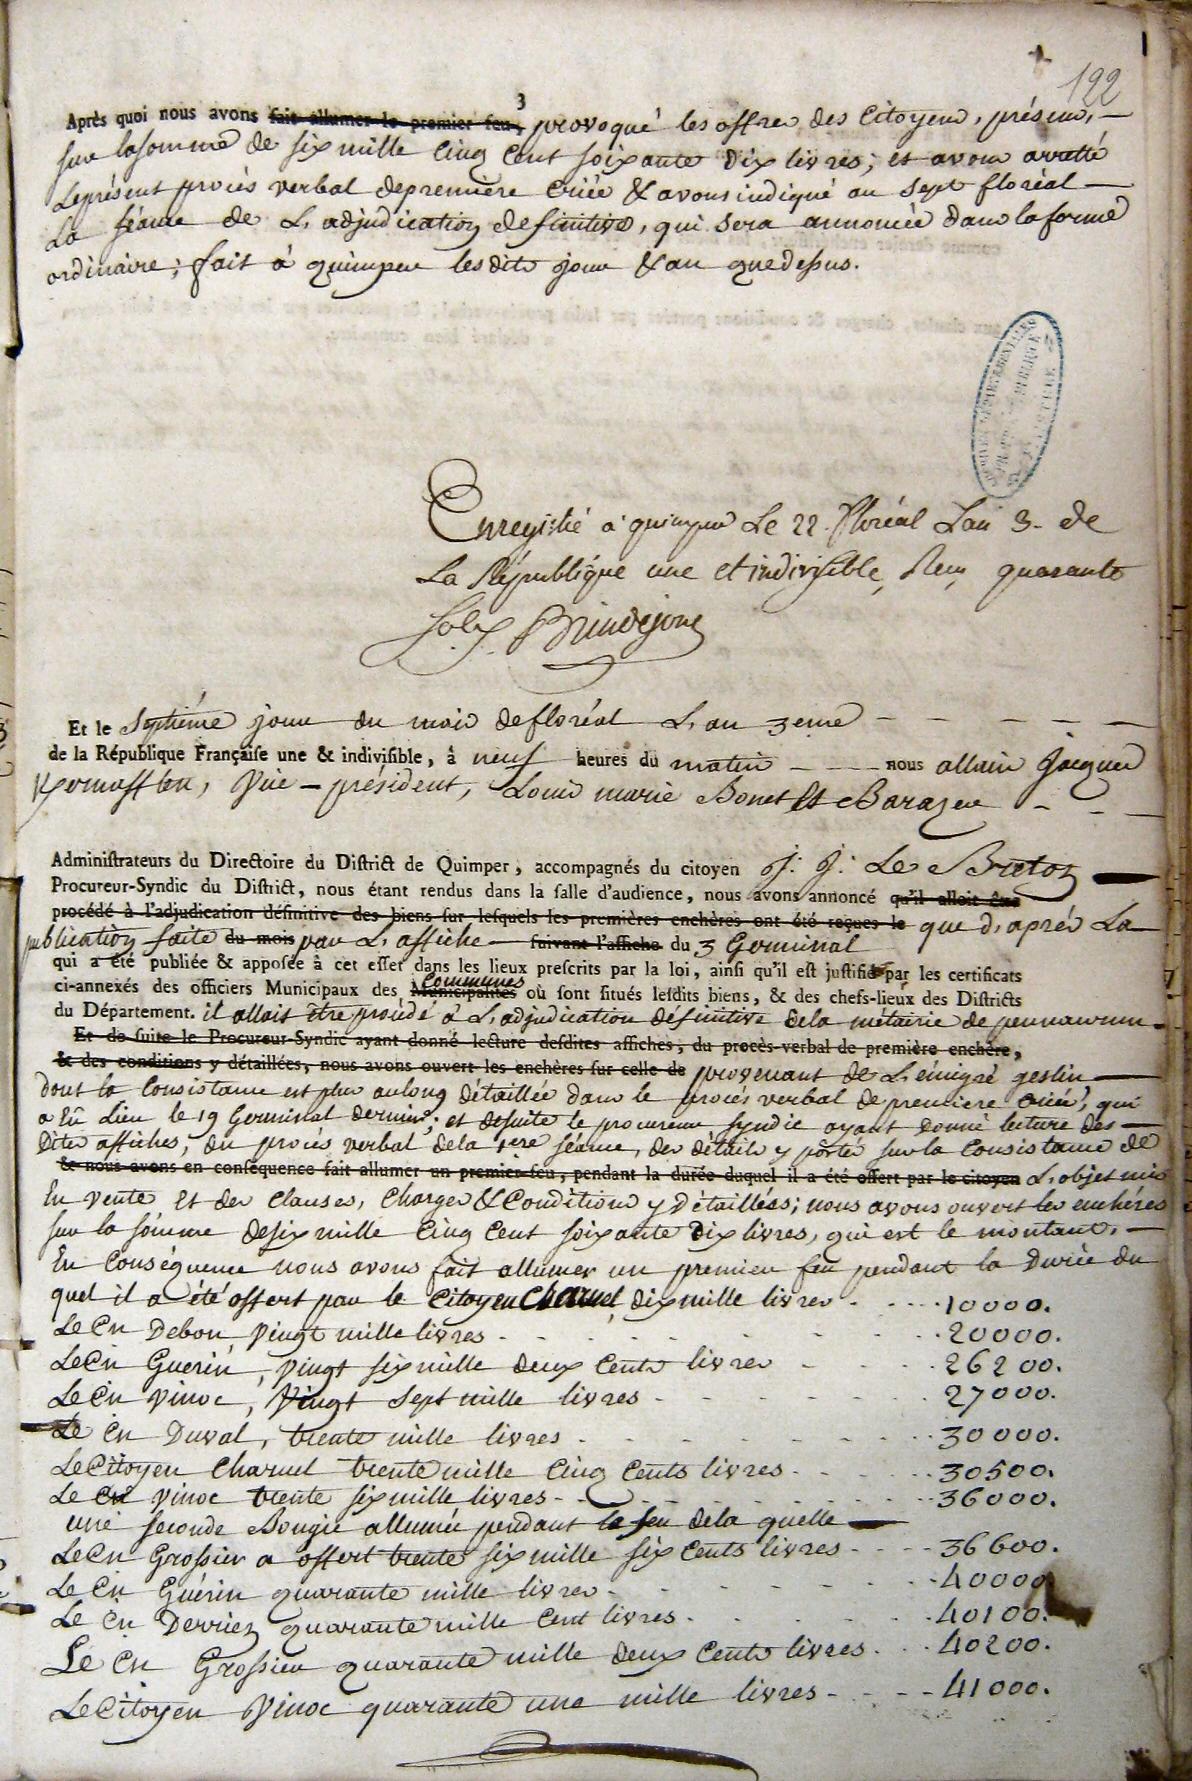 122
3
Après quoi nous avons fait allumer le premier feu, provoqué les offres des Citoyens, présens,
sur lasomme de six mille Cinq Cent soixante Dix livres; et avons arretté
Leprésent procès verbal depremière Criée & avons indiqué au sept floréal
La séance de L'adjudication definitive, qui sera annoncée dans la forme
ordinaire; fait à quimper lesdits jour & an quedessus.
Enregistré à quimper Le 22 floréal Lan 3 de
La République une et indivisible, Reçu quarante
Sols
Et le Septième jour du mois defloréal L'an 3eme
de la République Françaiſe une & indiviſible, à neuf heures du matin nous allain Jacques
Vice-président, Louis marie Bonet et
Adminiſtrateurs du Directoire du Diſtrict de Quimper, accompagnés du citoyen J. J. Le Breton
Procureur-Syndic du Diſtrict, nous étant rendus dans la ſalle d'audience, nous avons annoncé qu'il alloit être
procédé à l'adjudication définitive des biens ſur leſquels les premières enchères ont été reçues le que d'après La
publication faite du mois par L'affiche ſuivant l'affiche du 3 Germinal
qui a été publiée & appoſée à cet effet dans les lieux preſcrits par la loi, ainſi qu'il eſt juſtifié par les certificats
ci-annexés des officiers Municipaux des Municipalités Communes où ſont ſitués leſdits biens, & des chefs-lieux des Diſtricts
du Département. il allait être procédé à L'adjudication définitive dela métairie de
Et de ſuite le Procureur-Syndic ayant donné lecture deſdites affiches, du procès-verbal de première enchère,
& des conditions y détaillées, nous avons ouvert les enchères ſur celle de provenant de L'émigré geslin
dont la Consistance est plus aulong détaillée dans le procès verbal de première criée, qui
a Eû Lieu le 19 Germinal dernier; et desuite le procureur syndic ayant Donné lecture des
Dites affiches, du procès verbal dela 1ere séance, des détails y portés sur la Consistance de
& nous avons en conſéquence fait allumer un premier feu, pendant la durée duquel il a été offert par le citoyen L'objet mis
En vente Et des Clauses, Charges & Conditions y Détaillées; nous avons ouvert les enchères
sur la somme desix mille Cinq Cent soixante Dix livres, qui est le montant.
En Conséquence nous avons fait allumer un premier feu pendant la Durée du
quel il a été offert par le Citoyen Charuel, dix mille livres 10000.
Le Cn Debon, Vingt mille livres 20000.
Le Cn Guerin, Vingt six mille deux Cents livres 26200.
Le Cn Vinoc, Vingt sept mille livres 27000.
Le Cn Duval, trente mille livres 30000.
Le Citoyen Charuel trente mille Cinq Cents livres 30500.
Le Cn Vinoc trente six mille livres 36000.
une seconde Bougie allumée pendant le feu dela quelle
Le Cn Grossier a offert trente six mille six Cents livres 36600.
Le Cn Guérin quarante mille livres 40000
Le Cn Derrien quarante mille Cent livres 40100.
Le Cn Grossier quarante mille deux Cents livres 40200.
Le Citoyen Vinoc quarante une mille livres 41000.